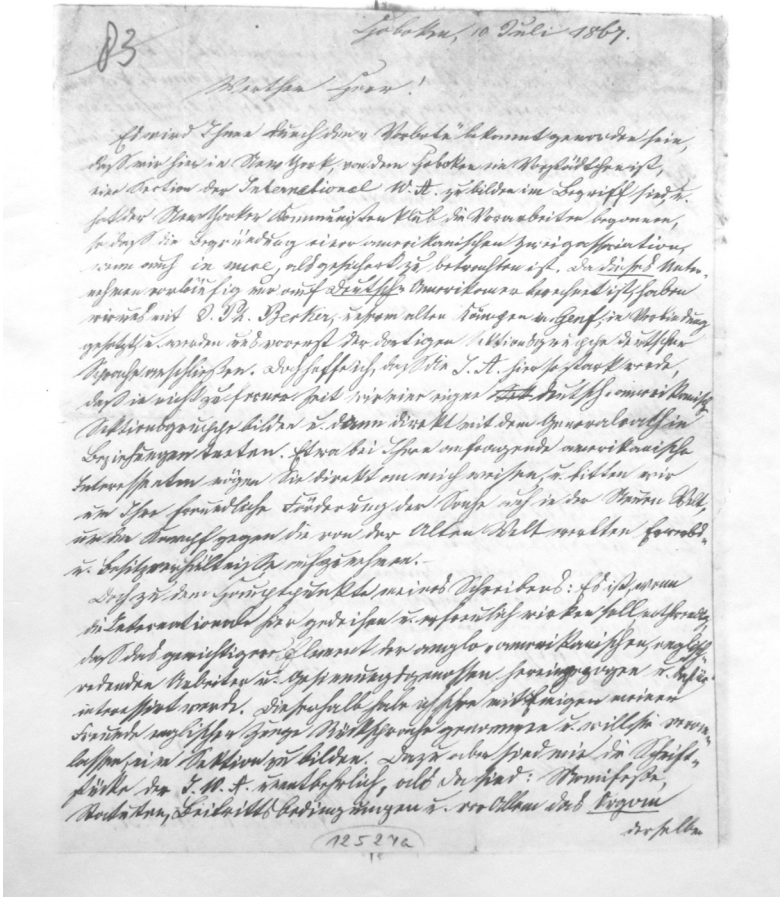 83
Hoboken, 10 Juli 1867.
Werther Herr!
Es wird Ihnen durch den „Vorbote“ bekannt geworden sein,
daß wir hier in New York, von dem Hoboken ein Vorstädtchen ist,
eine Section der International W. A. zu bilden im Begriff sind, u.
hat der New Yorker Kommunistenklub die Vorarbeiten begonnen,
so daß die Begründung einer amerikanischen Zweigassociation,
wenn auch in nuce, als gesichert zu betrachten ist. Da dieses Unter-
nehmen vorläufig nur auf Deutsch-Amerikaner berechnet ist, haben
wir uns mit J. Ph. Becker, unserm alten Kämpen in Genf, in Verbindung
gesetzt u. werden uns vorerst der dortigen Sektionsgruppe deutscher
Sprache anschließen. Doch hoffe ich, daß die I. A. hier so stark werde,
daß in nicht zu ferner Zeit wir eine eigene deutsch-amerikanische
Sektionsgruppe bilden u. dann direkt mit dem Generalrath in
Beziehungen treten. Etwa bei Ihnen anfragende amerikanische
Interessenten mögen Sie direkt an mich weisen, u. bitten wir
um Ihre freundliche Förderung der Sache auch in der Neuen Welt,
um den Kampf gegen die von der Alten Welt ererbten Erwerbs-
u. Besitzverhältnisse aufzunehmen.
Doch zu dem Hauptpunkte meines Schreibens: Es ist, wenn
die Internationale hier gedeihen u. erfreulich wirken soll, nothwendig,
daß das gewichtigere Element der anglo-amerikanischen, englisch
redenden Arbeiter u. Gesinnungsgenossen hereingezogen u. dafür
interessirt werde. Dieserhalb habe ich schon mit Einigen meiner
Freunde englischer Zunge Rücksprache genommen u. will sie veran-
lassen eine Sektion zu bilden. Dazu aber sind mir die Schrift-
stücke der I. W. A. unentbehrlich, als da sind: Manifeste,
Statuten, Beitrittsbedingungen u. vor Allem das Organ
derselben
12527a